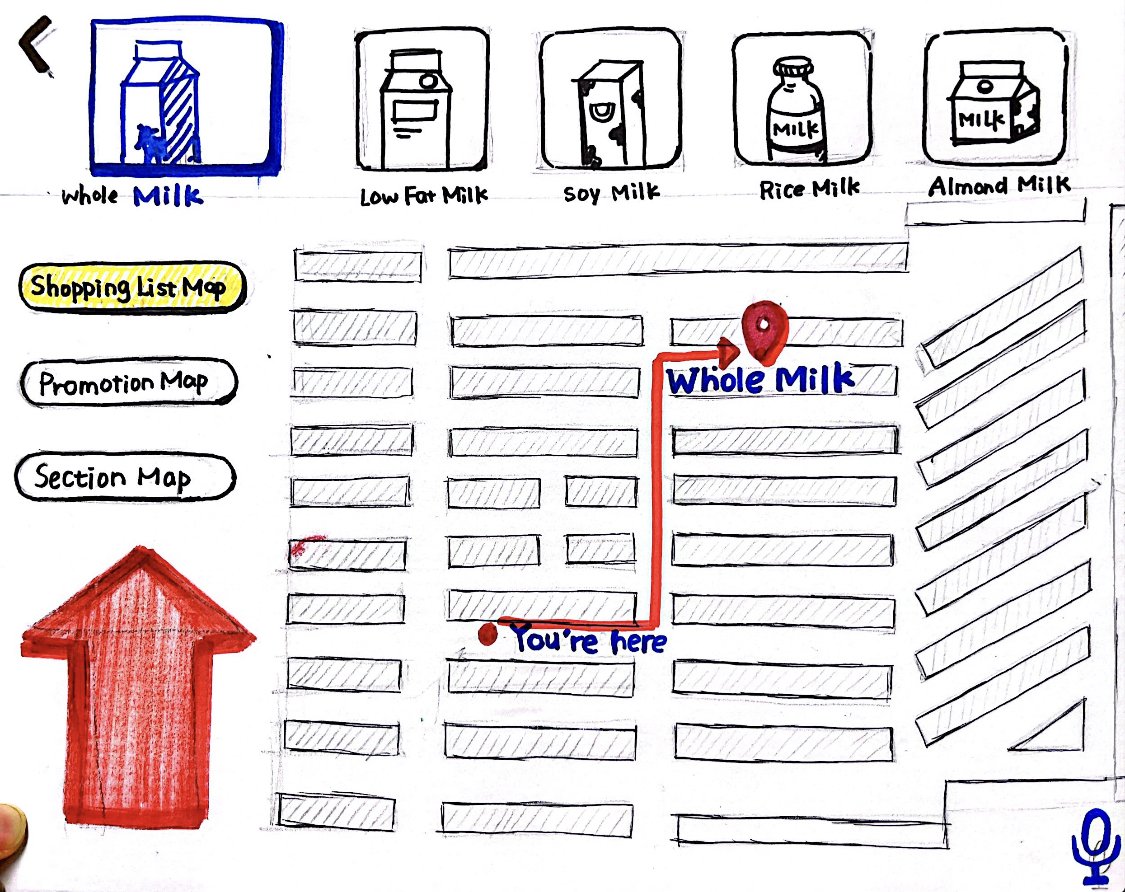 MILK
MILK
Whole Milk
Low Fat Milk
Soy Milk
Rice Milk
Almond Milk
Shopping List Map
Promotion Map
Section Map
Whole Milk
You're here